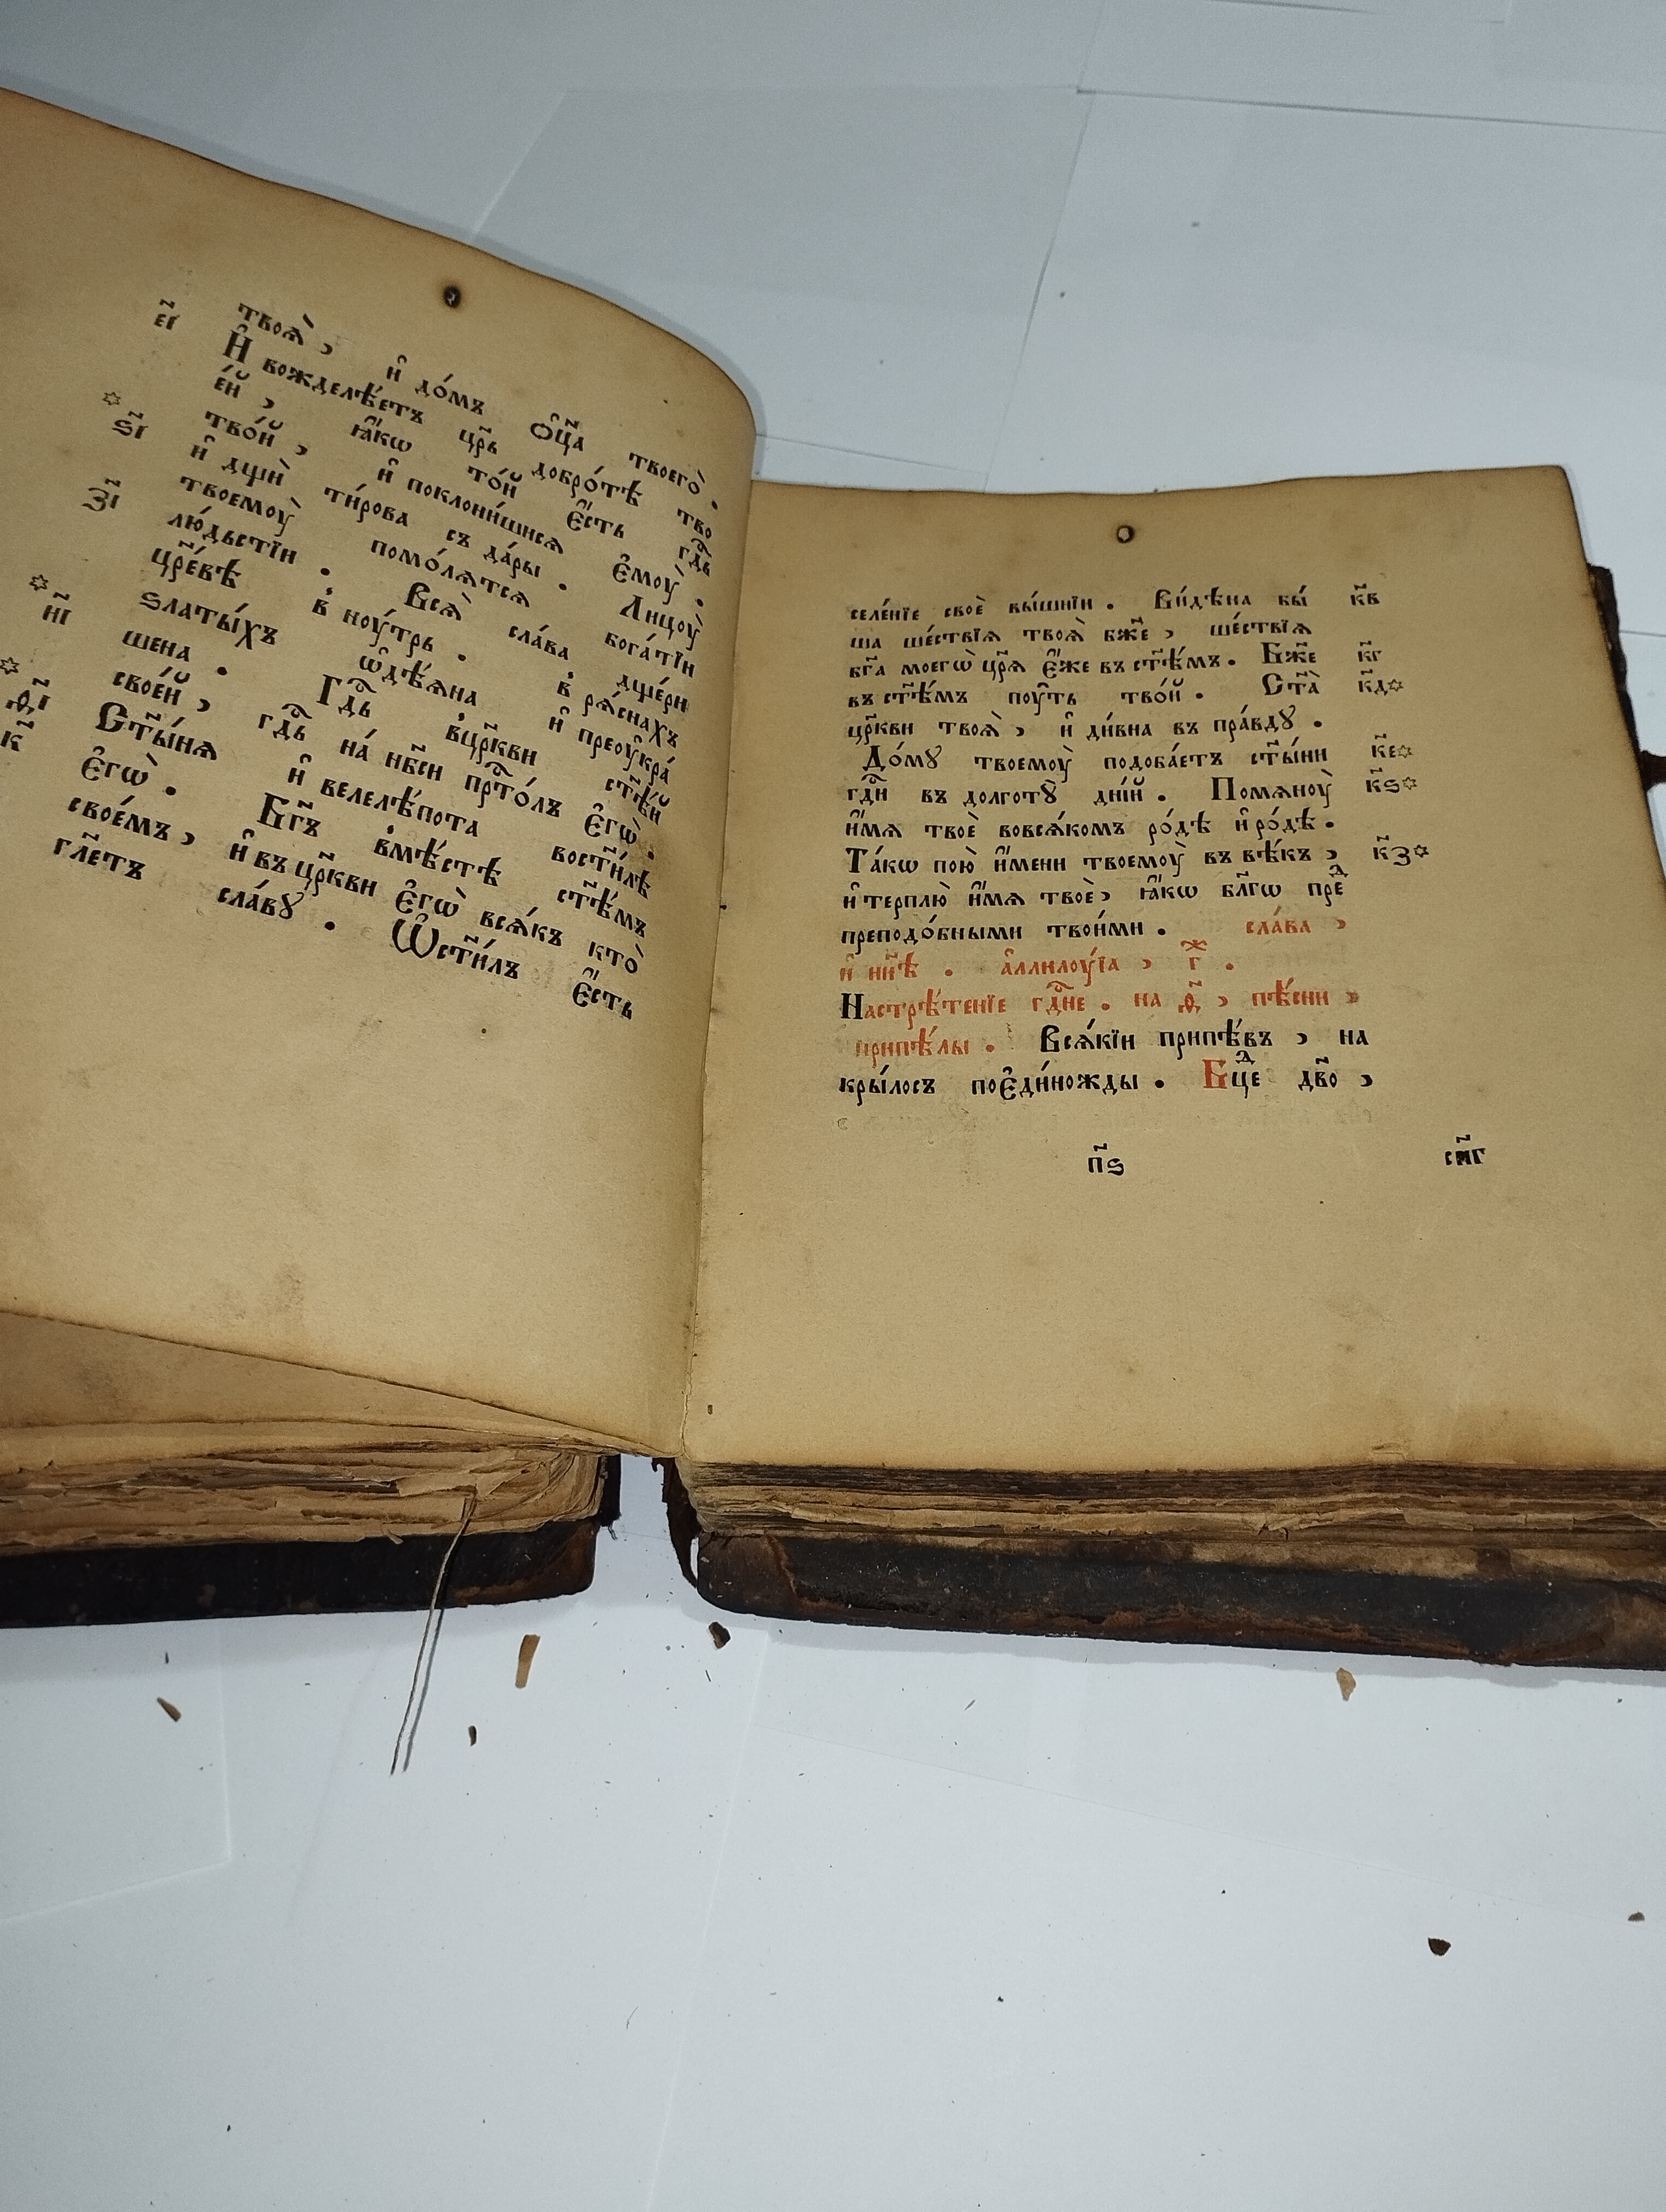 твоѧ̀ , и҆ до́мъ ѻ҆ц҃а твоегѡ̀ .
є҃і И҆ вожделѣ́етъ цр҃ь добро́тѣ тво
е́й , ꙗ҆́кѡ то́й є҆́сть гд҇ь
ѕ҃і тво́й , и҆ поклони́шисѧ є҆моу̀ .
и҆ дщѝ ти́рова съ да́ры . Лицоу̀
твоемоу̀ помо́лѧтсѧ бога́тїи
з҃і лю́дьстїи . Всѧ̀ сла́ва дще́ри
цр҃е́вѣ в҆ ноу́трь . в҆ рѧ́снахъ
ѕлаты́хъ ѡ҆дѣ́ѧна и҆ преоу҆кра́
и҃і шена . Гд҇ь в҆цр҃кви ст҃ѣ́й
свое́й , гд҇ь на́ нб҃си прт҇о́лъ є҆гѡ̀ .
ѳ҃і Ст҃ы́нѧ и҆ велелѣ́пота вост҃и́лѣ
к҃ є҆гѡ̀ . Бг҃ъ в҆мѣ́стѣ ст҃ѣ́мъ
свое́мъ , и҆ въ цр҃кви є҆гѡ̀ всѧ́къ кто̀
гл҃етъ сла́вꙋ . Ѡ҆ст҃и́лъ є҆́сть
селе́нїе своѐ вы́шнїи . Ви́дѣна бы́ к҃в
ша ше́ствїѧ твоѧ̀ бж҃е , ше́ствїѧ
бг҃а моегѡ̀ цр҃ѧ є҆́же въ ст҃ѣ́мъ . Бж҃е к҃г
въ ст҃ѣ́мъ поу́ть тво́й . Ст҃а̀ к҃д
цр҃кви твоѧ̀ , и҆ ди́вна въ пра́вдꙋ .
До́мꙋ твоемоу̀ подоба́етъ ст҃ы́ни к҃е
гд҇и въ долготꙋ̀ дні́й . Помѧноу̀ к҃ѕ
и҆́мѧ твоѐ вовсѧ́комъ ро́дѣ и҆ ро́дѣ .
Та́кѡ пою̀ и҆́мени твоемоу̀ въ вѣ́къ , к҃з
и҆ терплю̀ и҆́мѧ твоѐ , ꙗ҆́кѡ бл҃гѡ преⷣ
преподо́бными твои́ми . сла́ва ,
и҆ нн҃ѣ . а҆ллилоу́їа , гⷤ .
Настрѣ́тенїе гд҇не . на ѳ҃ , пѣ́сни
припѣ́лы . Всѧ́кїи припѣ́въ , на
кры́лосъ поє҆ди́ножды . Бцⷣе дв҃о ,
п҃ѕ см҃г